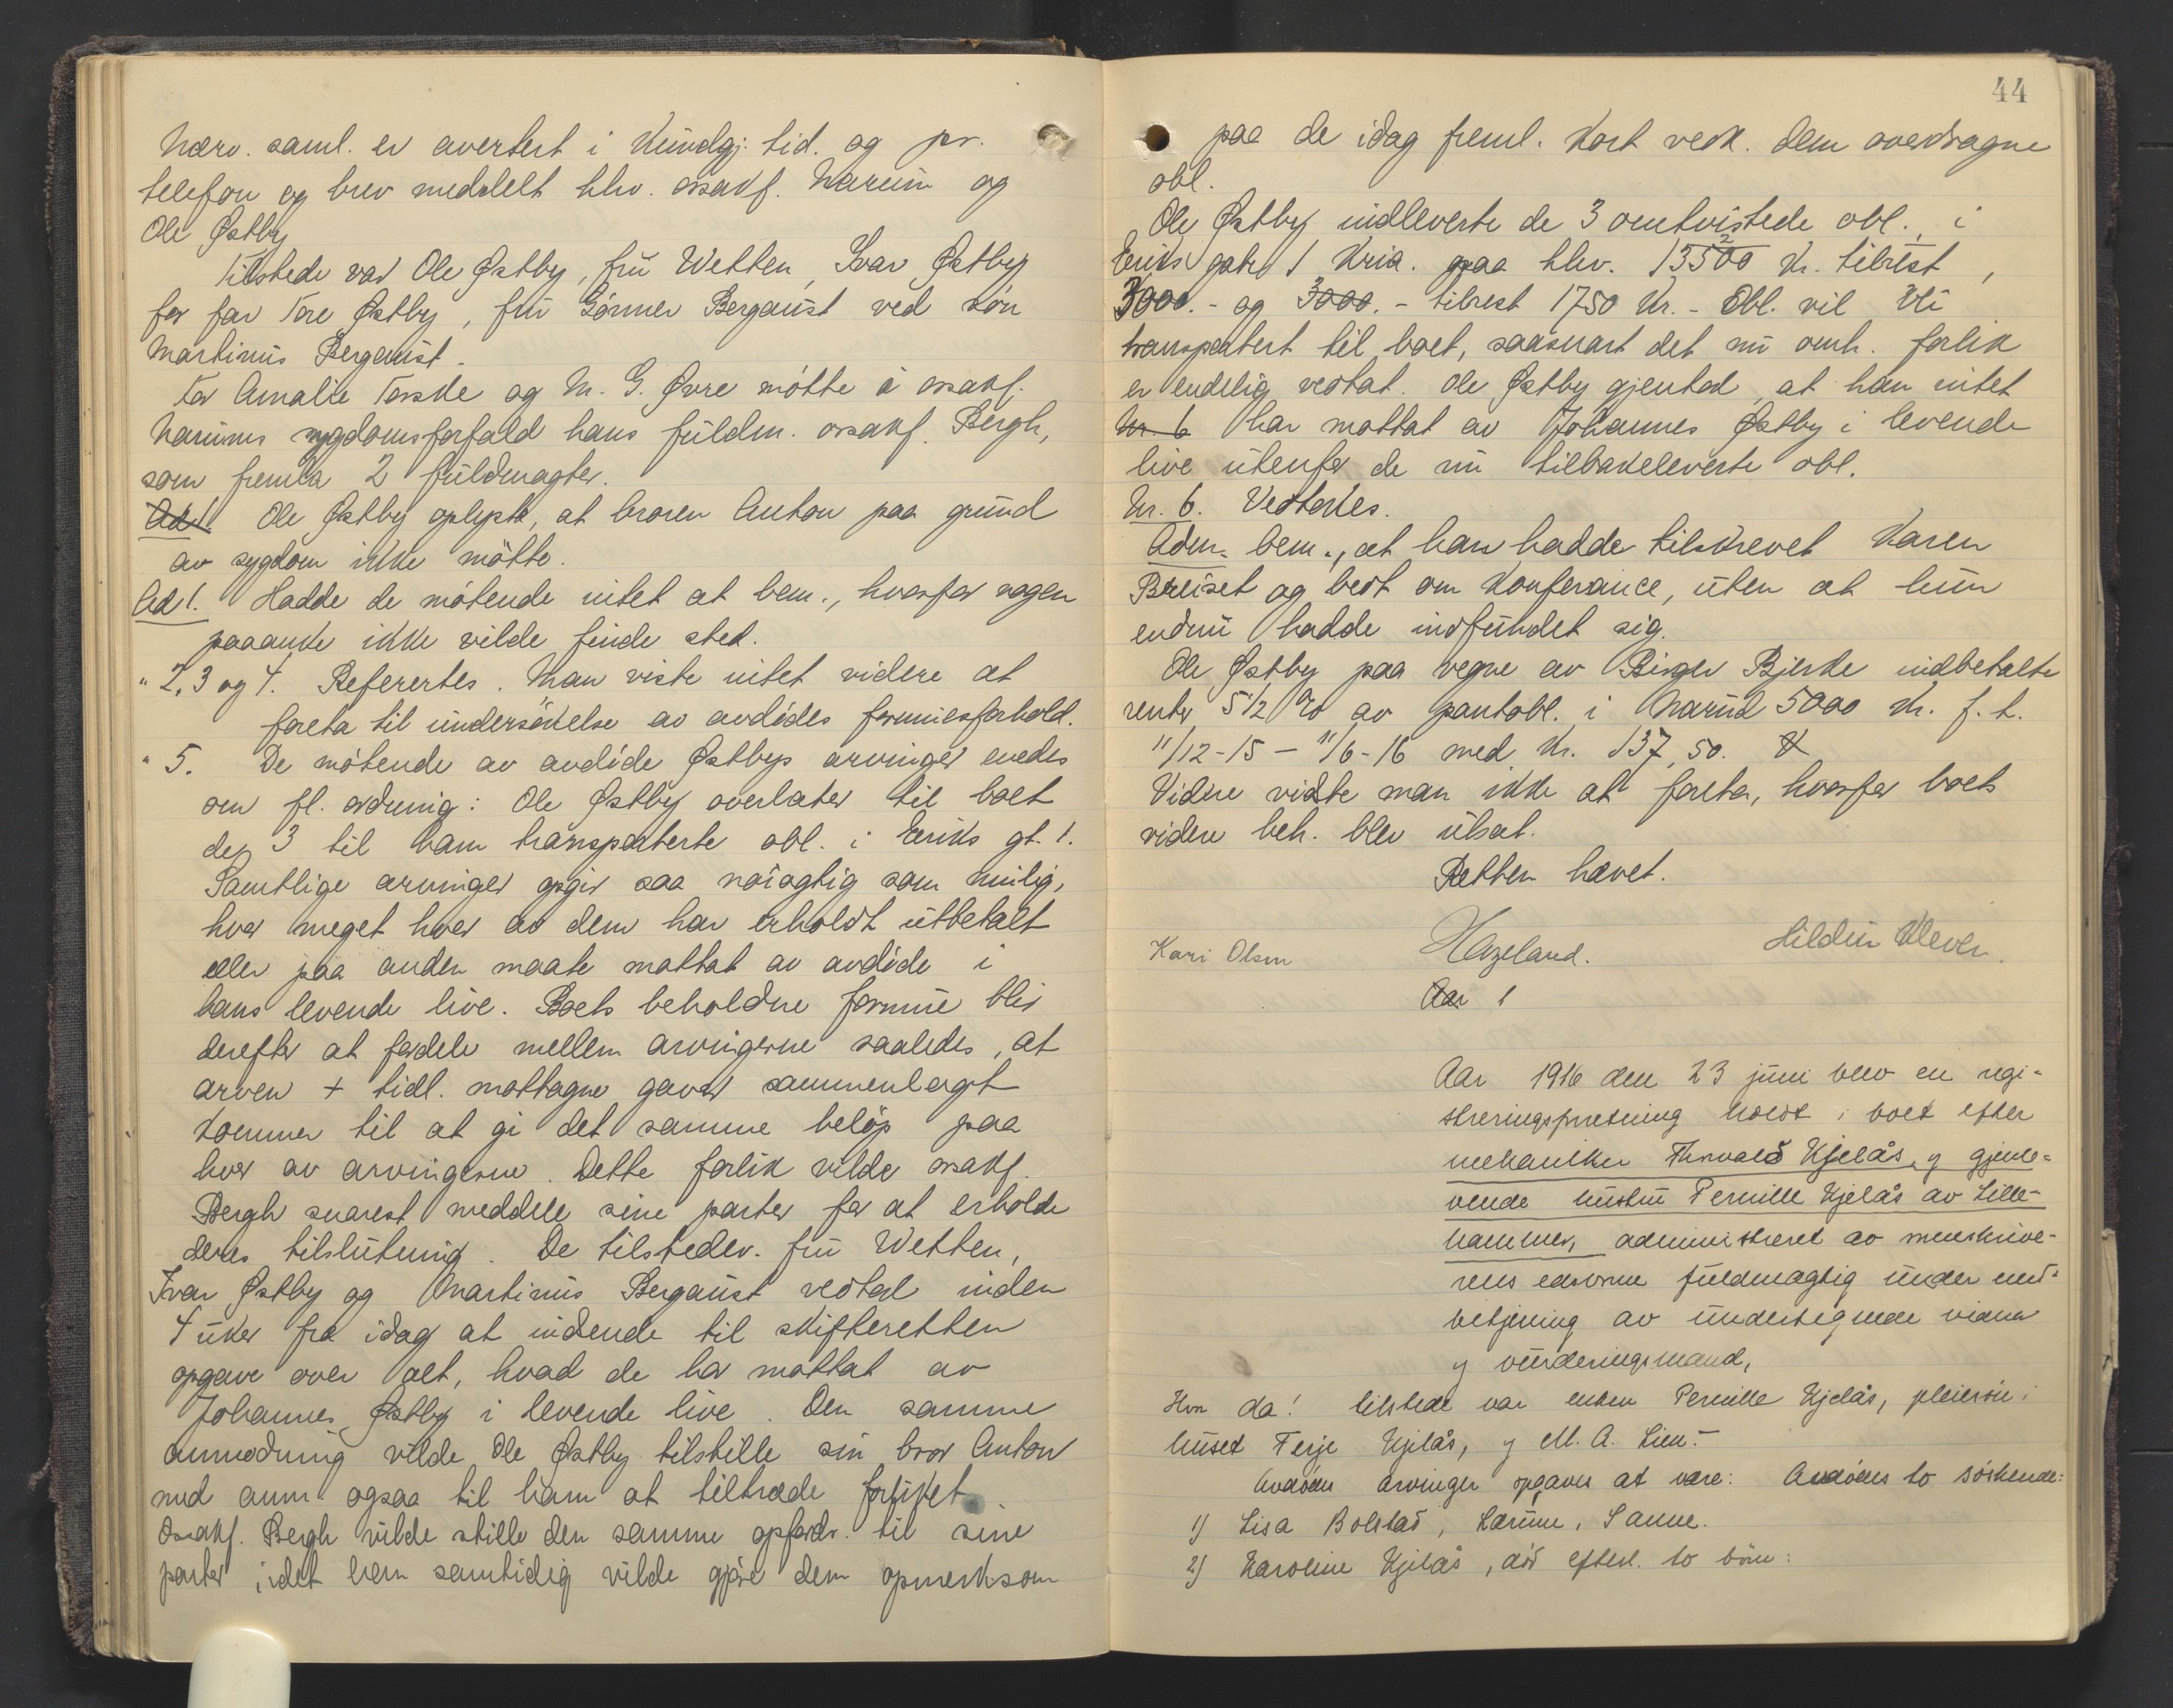 Nærv. saml. er avertert i Kundgj. tid. og pr.
telefon og brev meddelt hhv. ossakf. Narum og
Ole Østby
Tilstede var Ole Østby, fru Wetten, Ivar Østby
for far Tore Østby, fru Gönner Bergaust ved sön
Martinus Bergaust.
For Amalie Torske og M. G. Øvre mötte i ossakf.
Narums sygdomsforfald hans fuldm. ossakf. Bergh,
som fremla 2 fuldmagter.
Ad 1. Ole Østby oplyste, at broren Anton paa grund
av sygdom ikke mötte.
Ad 1. Hadde de mötende intet at bem., hvorfor nogen
paaanke ikke vilde finde sted.
" 2, 3 og 4. Referertes. Man viste intet videre at
foreta til undersökelse av avdödes formuesforhold.
" 5. De mötende av avdöde Østbys arvinger enedes
om fl. ordning: Ole Østby overlater til boet
de 3 til ham transporterte obl. i Eriks gt. 1.
Samtlige arvinger opgir saa nöiagtig som mulig,
hvor meget hver av dem har erholdt utbetalt
eller paa anden maate mottat av avdöde i
hans levende live. Boets beholdne formue blir
derefter at fordele mellem arvingerne saaledes, at
arven + tidl. mottagne gaver sammenlagt
kommer til at gi det samme belöp paa
hver av arvingerne. Dette forlik vilde ossakf.
Bergh snarest meddele sine parter for at erholde
deres tilslutning. De tilstedev. fru Wetten,
Ivar Østby og Martinus Bergaust vedtok inden
4 uker fra idag at indsende til skifteretten
opgave over alt, hvad de har mottat av
Johannes Østby i levende live. Den samme
anmodning vilde Ole Østby tilstille sin bror Anton
med anm. ogsaa til ham at tiltræde forliket.
Ossakf. Bergh vilde stille den samme opfordr. til sine
parter idet han samtidig vilde gjöre dem opmerksom
44
paa de idag freml. kort vedk. dem overdragne
obl.
Ole Østby indleverte de 3 omtvistede obl., i
Eriks gate 1 Kria. paa hhv. 13500 kr. tilrest,
3000.- og 3000.- tilrest 1750 kr. - Obl. vil bli
transportert til boet, saasnart det nu omh. forlik
er endelig vedtat. Ole Østby gjentok, at han intet
Nr. 6 har mottat av Johannes Østby i levende
live utenfor de nu tilbakeleverte obl.
Nr. 6. Vedtokes.
Adm. bem., at han hadde tilskrevet Karen
Breiset og bedt om konferance, uten at hun
endnu hadde indfundet sig.
Ole Østby paa vegne av Birger Bjerke indbetalte
renter 5 1/2 % av pantobl. i Narud 5000 kr. f. t.
11/12-15 - 11/6-16 med kr. 137,50.
Videre vidste man ikke at foreta, hvorfor boets
videre beh. blev utsat.
Retten hævet.
Kari Olsen Hazeland. Hildur Kleven.
Aar 1
Aar 1916 den 23 juni blev en regi-
streringsforretning holdt i boet efter
mekaniker Thorvald Kjelås og gjenle-
vende hustru Pernille Kjelås av Lille-
hammer, administreret av sorenskrive-
rens edsvorne fuldmægtig under med-
betjening av undertegnede vidner
og vurderingsmænd,
Hvor da! tilstede var enken Pernille Kjelås, pleiesön i
huset Terje Kjelås, og M. A. Lien.-
Avdödes arvinger opgaves at være: Avdödes to söskende:
1) Lisa Bolstad, Sanne.
2) Karoline Kjelås, död efterl. to börn: